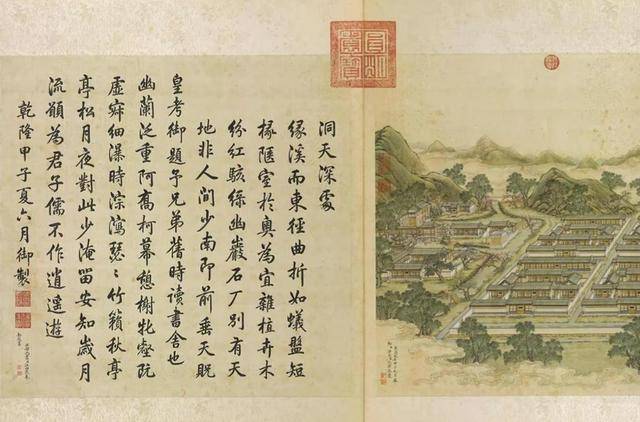 圓明
園寶
洞天深處
緣溪而東徑曲折如蟻盤短
椽陿室於奧為宜雜植卉木
紛紅駭綠幽巖石厂別有天
地非人間少南即前垂天貺
皇考御題予兄弟舊時讀書舍也
幽蘭泛重阿喬柯幕憩榭牝壑既
虛寂細瀑時淙瀉瑟〻竹籟秋亭
亭松月夜對此少淹留安知歲月
流願為君子儒不作逍遙遊
乾隆甲子夏六月御製